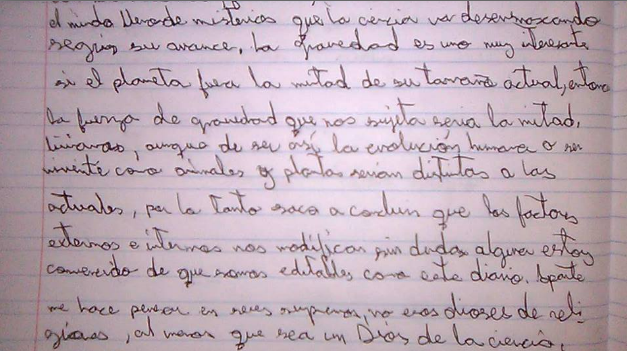 el mundo lleno de misterios que la ciencia va desenmascando
segun su avance, la gravedad es uno muy interesante
si el planeta fuera la mitad de su tamaño actual, entonces
la fuerza de gravedad que nos sujeta seria la mitad,
livianos, aunque de ser así la evolución humana o ser
viviente como animales y plantas serian distintas a las
actuales, por lo tanto saco a conclusion que los factores
externos e internos nos modifican sin dudas alguna estoy
convencido de que somos editables como este diario. Aparte
me hace pensar en seres supremos, no esos dioses de reli-
giones, al menos que sea un Dios de la ciencia.